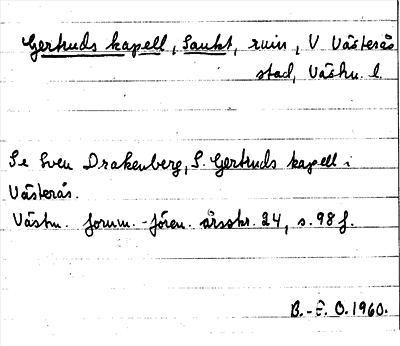 Gertruds kapell, Sankt, ruin, V. Västerås
stad, Västm. l.
Se Sven Drakenberg, S. Gertruds kapell i
Västerås.
Västm. fornm.-fören. årsskr. 24, s. 98 f.
B.-E. O. 1960.